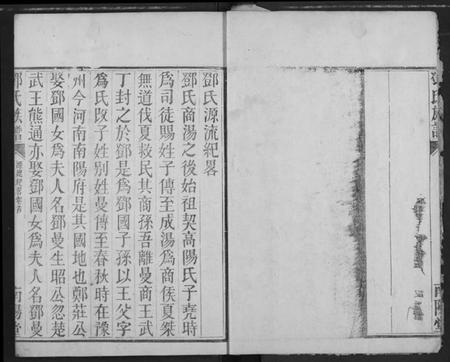 鄧氏族譜
南陽堂
鄧氏源流紀畧
鄧氏商湯之後始祖契高陽氏子堯時
爲司徒賜姓子傳至成湯爲商侯夏桀
無道伐夏救民其商孫吾離曼商王武
丁封之於鄧是爲鄧國子孫以王父字
爲氏改子姓别姓曼傳至春秋時在豫
州今河南南陽府是其國地也鄭莊公
娶鄧國女爲夫人名鄧曼生昭公忽楚
武王熊通亦娶鄧國女爲夫人名鄧曼
鄧氏族譜
南陽堂